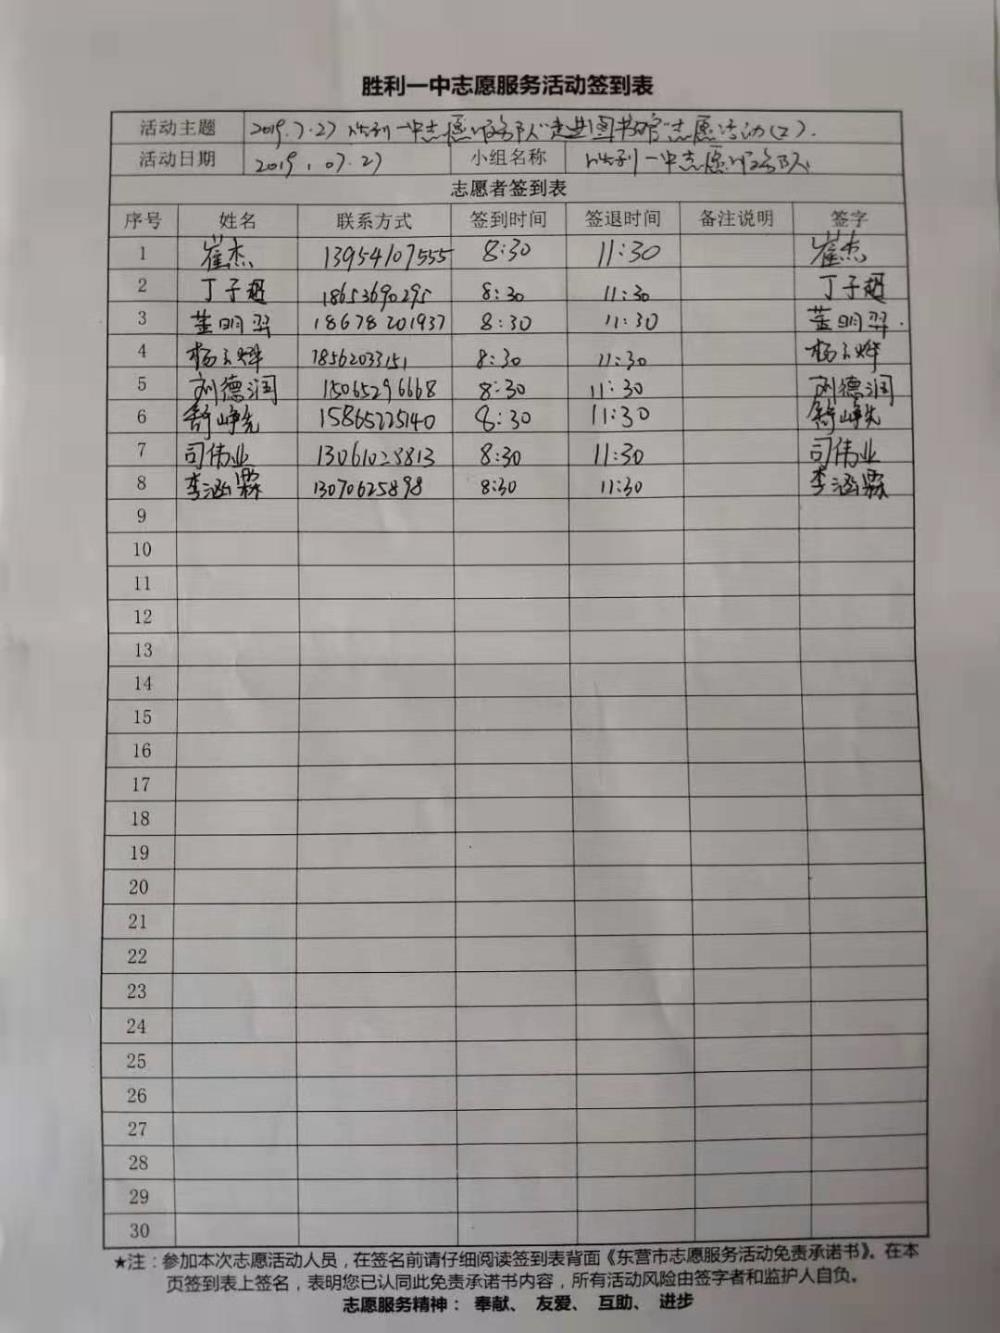 胜利一中志愿服务活动签到表
活动主题 2019.7.27 胜利一中志愿服务队“走进图书馆”志愿活动(2).
活动日期 2019.07.27 小组名称 胜利一中志愿服务队
志愿者签到表
序号 姓名 联系方式 签到时间 签退时间 备注说明 签字
1 崔杰 13954107555 8:30 11:30 崔杰
2 丁子超 18653690295 8:30 11:30 丁子超
3 董明羿 18678201937 8:30 11:30 董明羿.
4 杨天烨 18562033151 8:30 11:30 杨天烨
5 刘德润 15065296668 8:30 11:30 刘德润
6 舒峥先 15865225140 8:30 11:30 舒峥先
7 司伟业 13061023813 8:30 11:30 司伟业
8 李涵霖 13070625898 8:30 11:30 李涵霖
9
10
11
12
13
14
15
16
17
18
19
20
21
22
23
24
25
26
27
28
29
30
★注：参加本次志愿活动人员，在签名前请仔细阅读签到表背面《东营市志愿服务活动免责承诺书》。在本
页签到表上签名，表明您已认同此免责承诺书内容，所有活动风险由签字者和监护人自负。
志愿服务精神： 奉献、 友爱、 互助、 进步